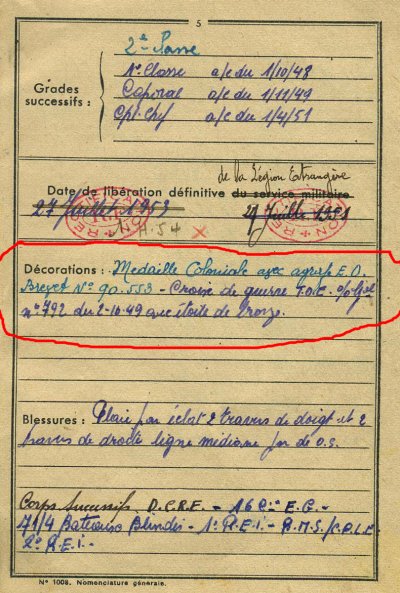 5
2e Classe
Grades successifs :
1re Classe a/c du 1/10/48
Caporal a/c du 1/11/49
Cpl. Chef a/c du 1/4/51
de la Légion Etrangère
Date de libération définitive du service militaire
27 Juillet 1953
27 Juillet 1951
Décorations : Médaille Coloniale avec agrafe E.O.
Brevet N° 90.553 - Croix de guerre T.O.E. O/Gal
n° 792 du 2-10-49 avec étoile de bronze.
Blessures : Plaie par éclat 2 travers de doigt et 2
travers de droite ligne médiane
Corps Successifs D.C.R.E. - 16
Blindés - 1° R.E.I. -
2° R.E.I. -
N° 1008. Nomenclature générale.